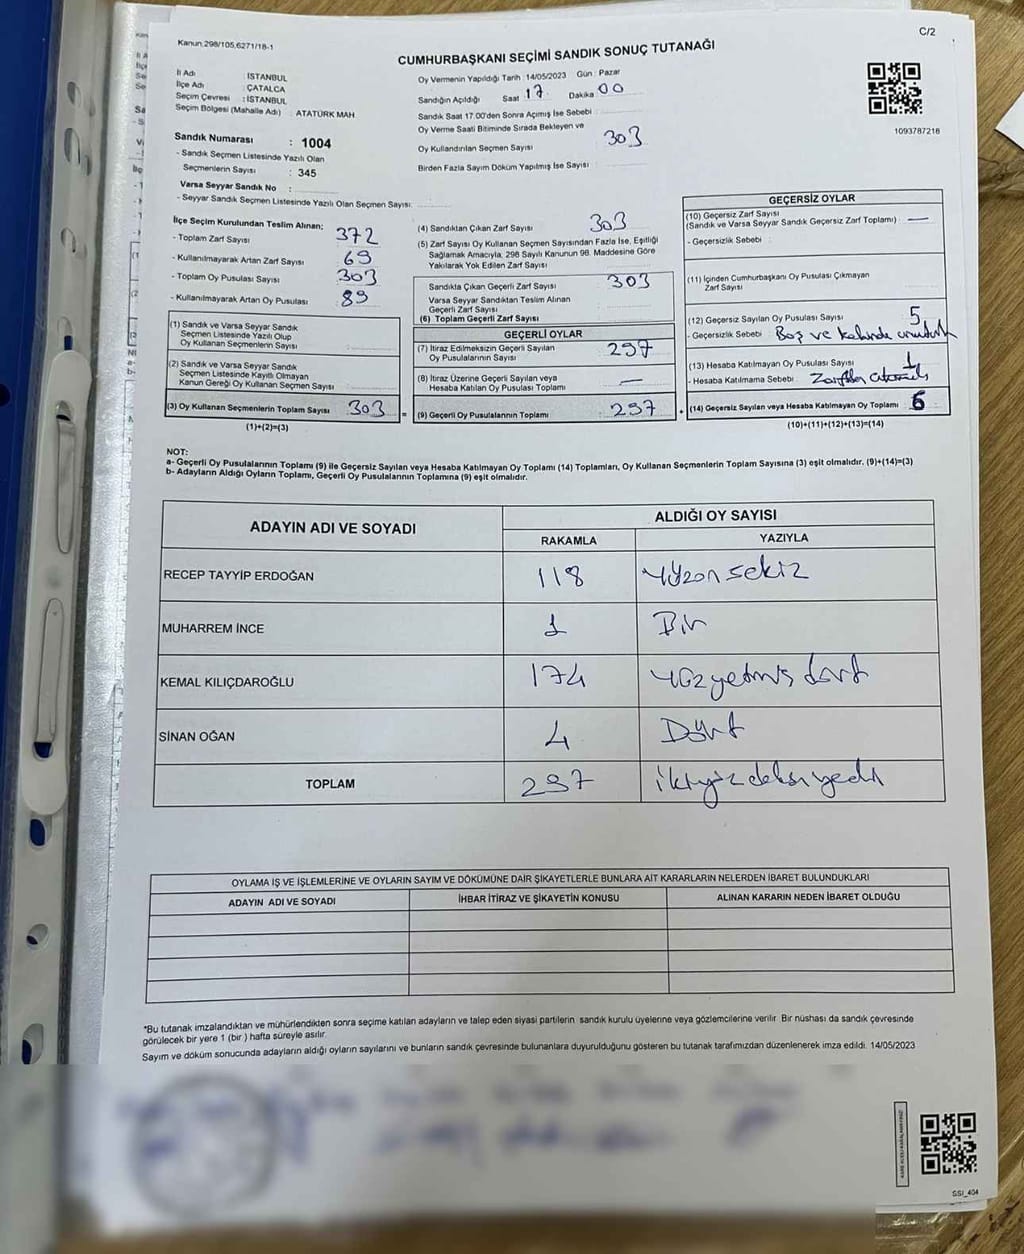 Kanun,298/105,6271/18-1
C/2
CUMHURBAŞKANI SEÇİMİ SANDIK SONUÇ TUTANAĞI
İl Adı : İSTANBUL
İlçe Adı : ÇATALCA
Seçim Çevresi : İSTANBUL
Seçim Bölgesi (Mahalle Adı) : ATATÜRK MAH
Sandık Numarası : 1004
- Sandık Seçmen Listesinde Yazılı Olan
Seçmenlerin Sayısı : 345
Varsa Seyyar Sandık No :
- Seyyar Sandık Seçmen Listesinde Yazılı Olan Seçmen Sayısı:
Oy Vermenin Yapıldığı Tarih :14/05/2023 Gün : Pazar
Sandığın Açıldığı Saat 17 Dakika 00
Sandık Saat 17.00'den Sonra Açımış İse Sebebi :
Oy Verme Saati Bitiminde Sırada Bekleyen ve
Oy Kullandırılan Seçmen Sayısı 303
Birden Fazla Sayım Döküm Yapılmış İse Sayısı :
1093787218
İlçe Seçim Kurulundan Teslim Alınan;
- Toplam Zarf Sayısı : 372
- Kullanılmayarak Artan Zarf Sayısı : 69
- Toplam Oy Pusulası Sayısı : 303
- Kullanılmayarak Artan Oy Pusulası : 89
(1) Sandık ve Varsa Seyyar Sandık
Seçmen Listesinde Yazılı Olup
Oy Kullanan Seçmenlerin Sayısı
(2) Sandık ve Varsa Seyyar Sandık
Seçmen Listesinde Kayıtlı Olmayan
Kanun Gereği Oy Kullanan Seçmen Sayısı
(3) Oy Kullanan Seçmenlerin Toplam Sayısı 303 =
(1)+(2)=(3)
(4) Sandıktan Çıkan Zarf Sayısı 303
(5) Zarf Sayısı Oy Kullanan Seçmen Sayısından Fazla İse, Eşitliği
Sağlamak Amacıyla, 298 Sayılı Kanunun 98. Maddesine Göre
Yakılarak Yok Edilen Zarf Sayısı
Sandıkta Çıkan Geçerli Zarf Sayısı 303
Varsa Seyyar Sandıktan Teslim Alınan
Geçerli Zarf Sayısı
(6) Toplam Geçerli Zarf Sayısı
GEÇERLİ OYLAR
(7) İtiraz Edilmeksizin Geçerli Sayılan
Oy Pusulalarının Sayısı 297
(8) İtiraz Üzerine Geçerli Sayılan veya
Hesaba Katılan Oy Pusulası Toplamı —
(9) Geçerli Oy Pusulalarının Toplamı 297 +
GEÇERSİZ OYLAR
(10) Geçersiz Zarf Sayısı
(Sandık ve Varsa Seyyar Sandık Geçersiz Zarf Toplamı) —
- Geçersizlik Sebebi :
(11) İçinden Cumhurbaşkanı Oy Pusulası Çıkmayan
Zarf Sayısı
(12) Geçersiz Sayılan Oy Pusulası Sayısı 5
- Geçersizlik Sebebi : Boş ve kabinde unutulan
(13) Hesaba Katılmayan Oy Pusulası Sayısı 1
- Hesaba Katılmama Sebebi : Zarftan
(14) Geçersiz Sayılan veya Hesaba Katılmayan Oy Toplamı 6
(10)+(11)+(12)+(13)=(14)
NOT:
a- Geçerli Oy Pusulalarının Toplamı (9) ile Geçersiz Sayılan veya Hesaba Katılmayan Oy Toplamı (14) Toplamları, Oy Kullanan Seçmenlerin Toplam Sayısına (3) eşit olmalıdır. (9)+(14)=(3)
b- Adayların Aldığı Oyların Toplamı, Geçerli Oy Pusulalarının Toplamına (9) eşit olmalıdır.
ADAYIN ADI VE SOYADI
ALDIĞI OY SAYISI
RAKAMLA YAZIYLA
RECEP TAYYİP ERDOĞAN 118 Yüzonsekiz
MUHARREM İNCE 1 Bir
KEMAL KILIÇDAROĞLU 174 Yüzyetmiş dört
SİNAN OĞAN 4 Dört
TOPLAM 297 ikiyüzdoksanyedi
OYLAMA İŞ VE İŞLEMLERİNE VE OYLARIN SAYIM VE DÖKÜMÜNE DAİR ŞİKAYETLERLE BUNLARA AİT KARARLARIN NELERDEN İBARET BULUNDUKLARI
ADAYIN ADI VE SOYADI İHBAR İTİRAZ VE ŞİKAYETİN KONUSU ALINAN KARARIN NEDEN İBARET OLDUĞU
*Bu tutanak imzalandıktan ve mühürlendikten sonra seçime katılan adayların ve talep eden siyasi partilerin sandık kurulu üyelerine veya gözlemcilerine verilir. Bir nüshası da sandık çevresinde
görülecek bir yere 1 (bir ) hafta süreyle asılır.
Sayım ve döküm sonucunda adayların aldığı oyların sayılarını ve bunların sandık çevresinde bulunanlara duyurulduğunu gösteren bu tutanak tarafımızdan düzenlenerek imza edildi. 14/05/2023
SSI_404